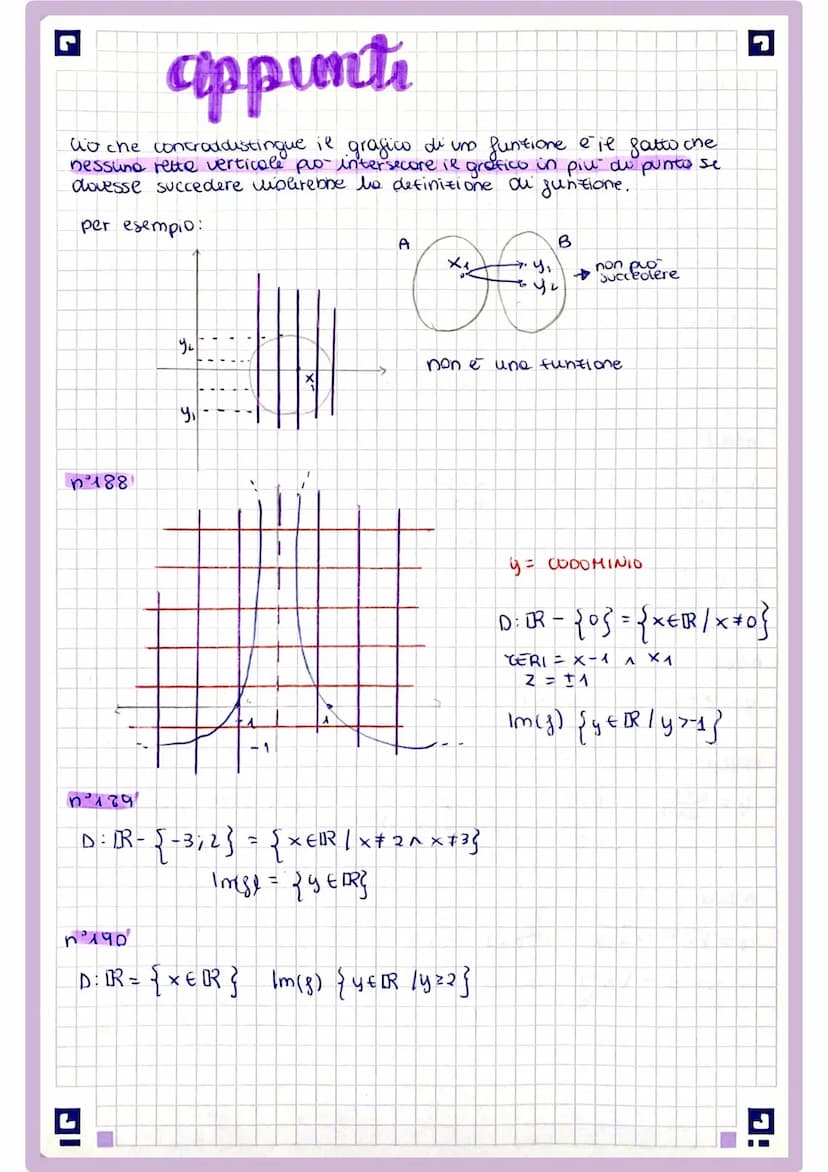 appunti
Ciò che contraddistingue il grafico di una funzione è il fatto che
nessuna retta verticale può intersecare il grafico in più di punto se
dovesse succedere violerebbe la definizione di funzione.
per esempio:
A B
x1 y1 y2 → non può
succedere
y2
x1
y1
non è una funzione
n°188
y = CODOMINIO
D: ℝ - {0} = {x∈ℝ / x≠0}
ZERI = x-1 ∧ x1
z = ±1
Im(f) {y∈ℝ / y>-1}
-1 1
-1
n°189
D: ℝ - {-3; 2} = {x∈ℝ / x≠2 ∧ x≠3}
Im(f) = {y∈ℝ}
n°190
D: ℝ = {x∈ℝ} Im(f) {y∈ℝ / y≥2}